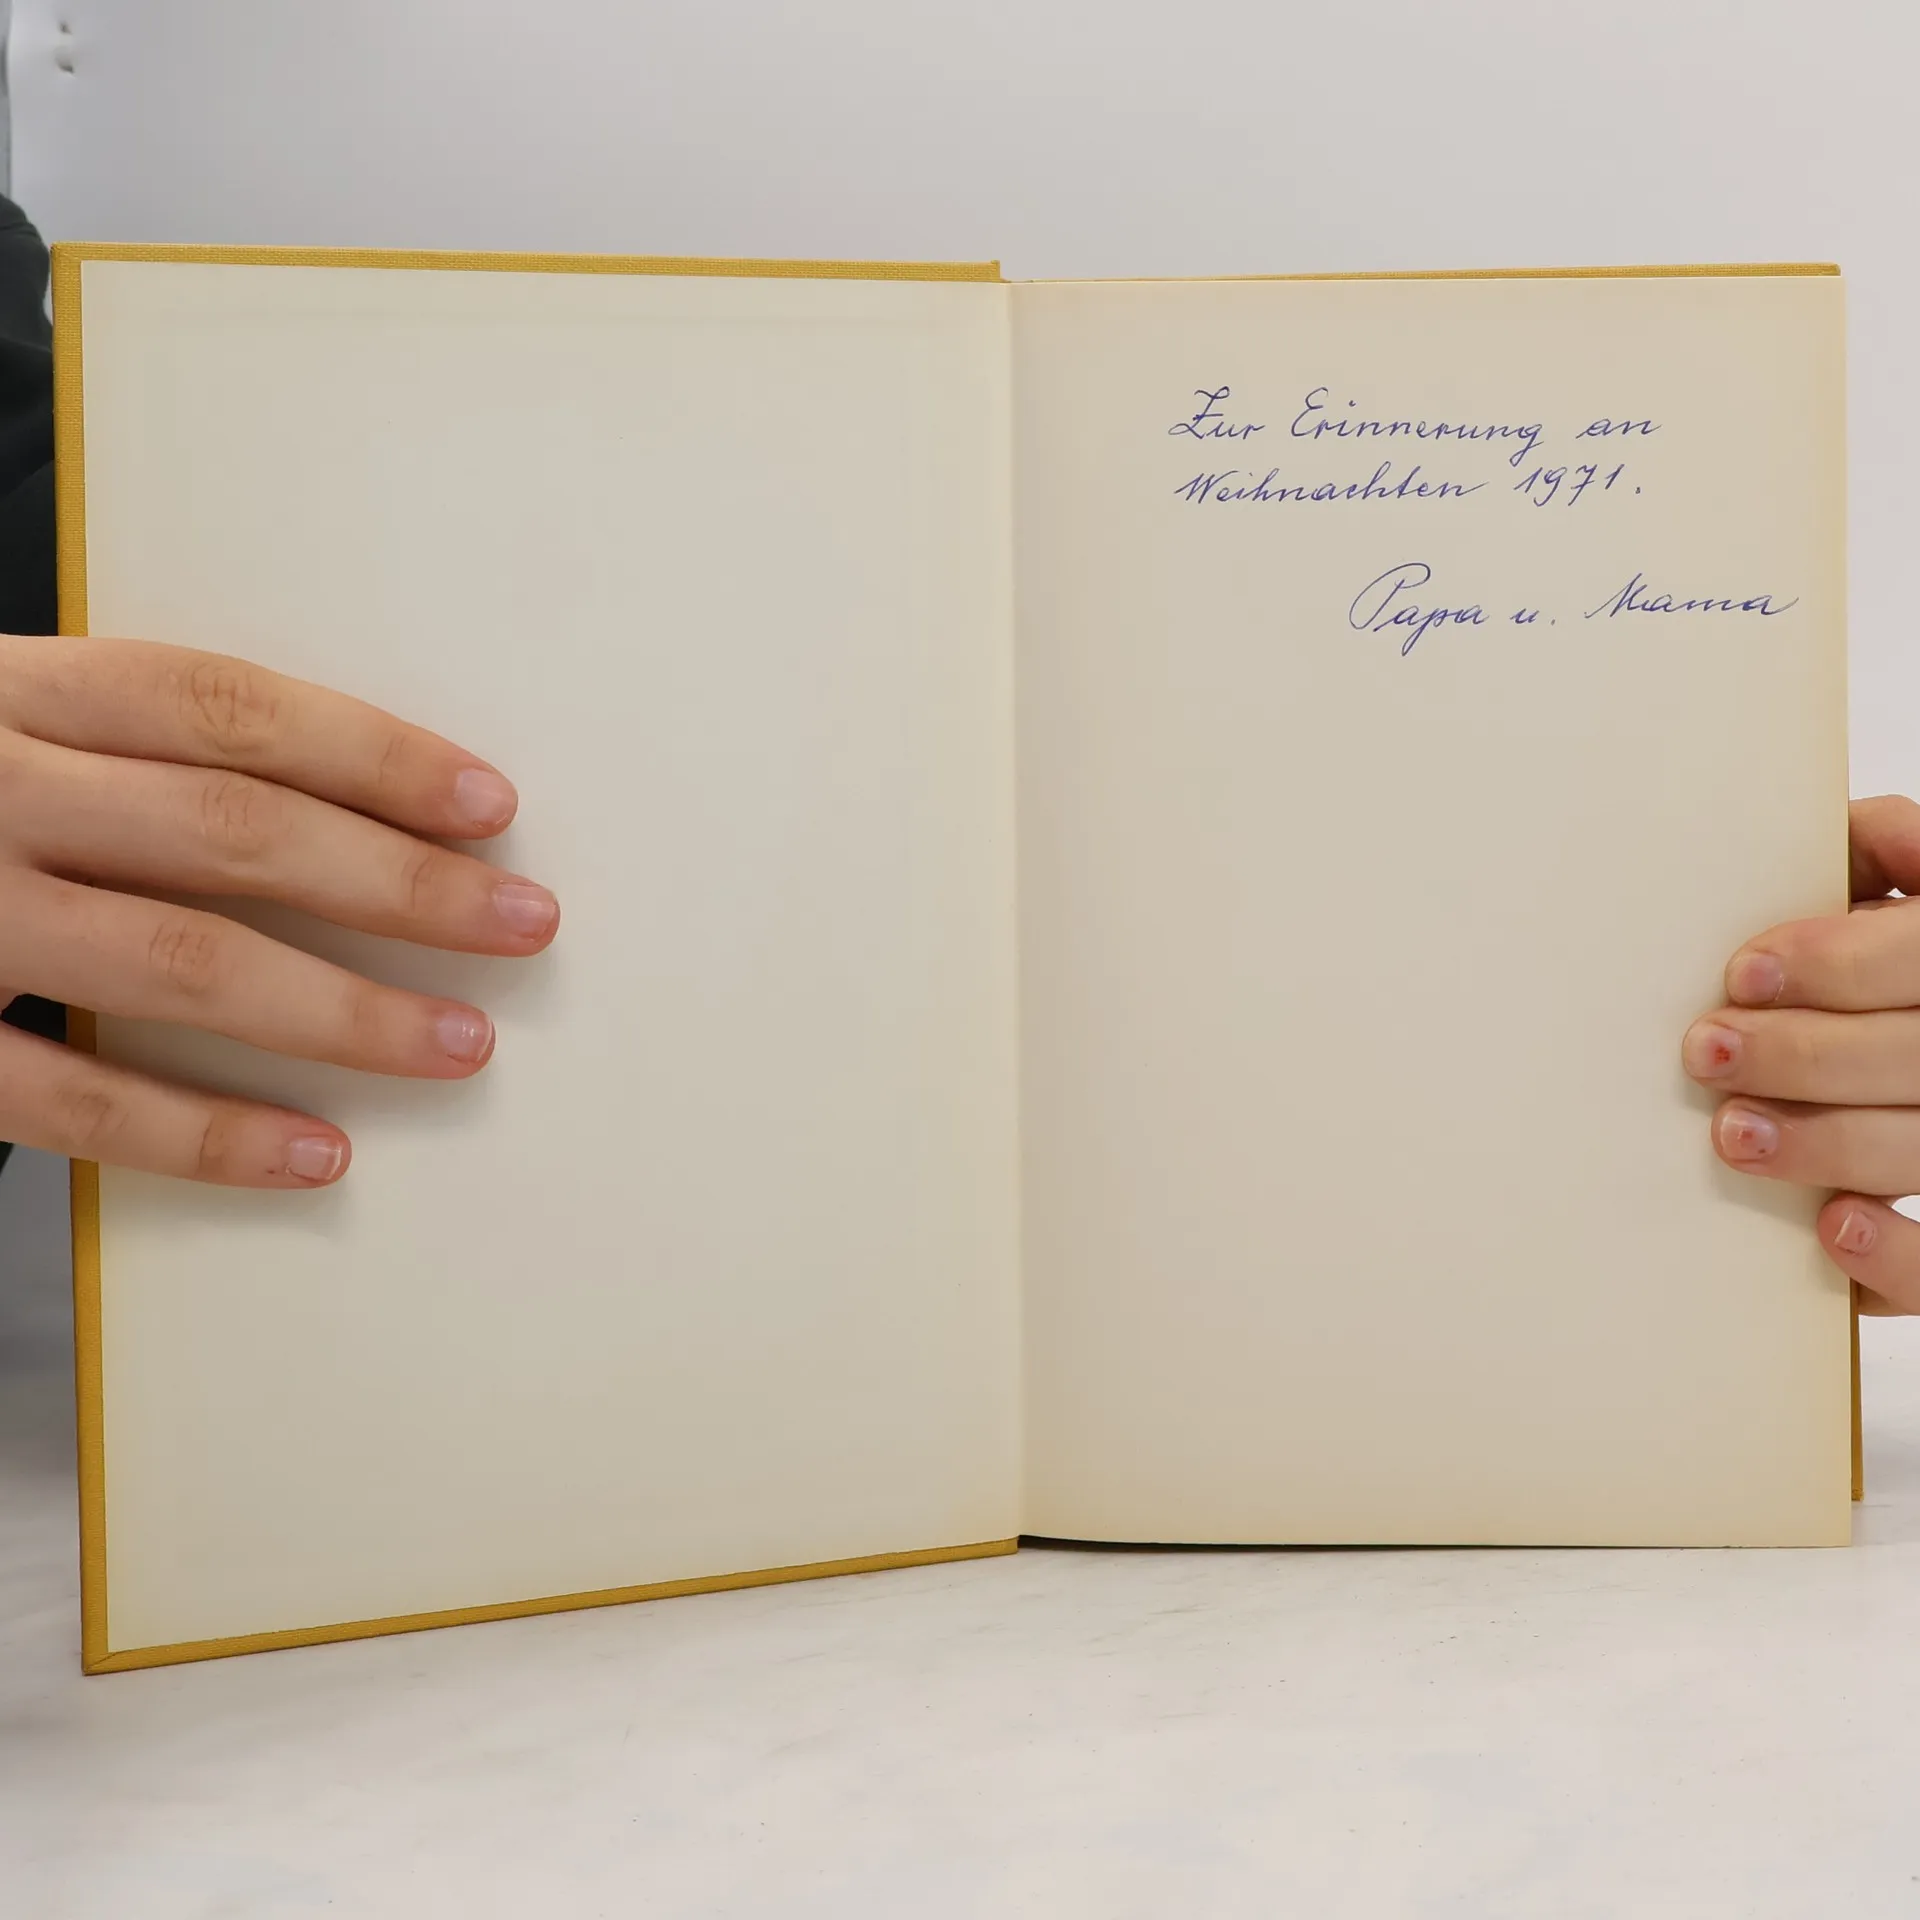 Zur Erinnerung an
Weihnachten 1971.
Papa u. Mama